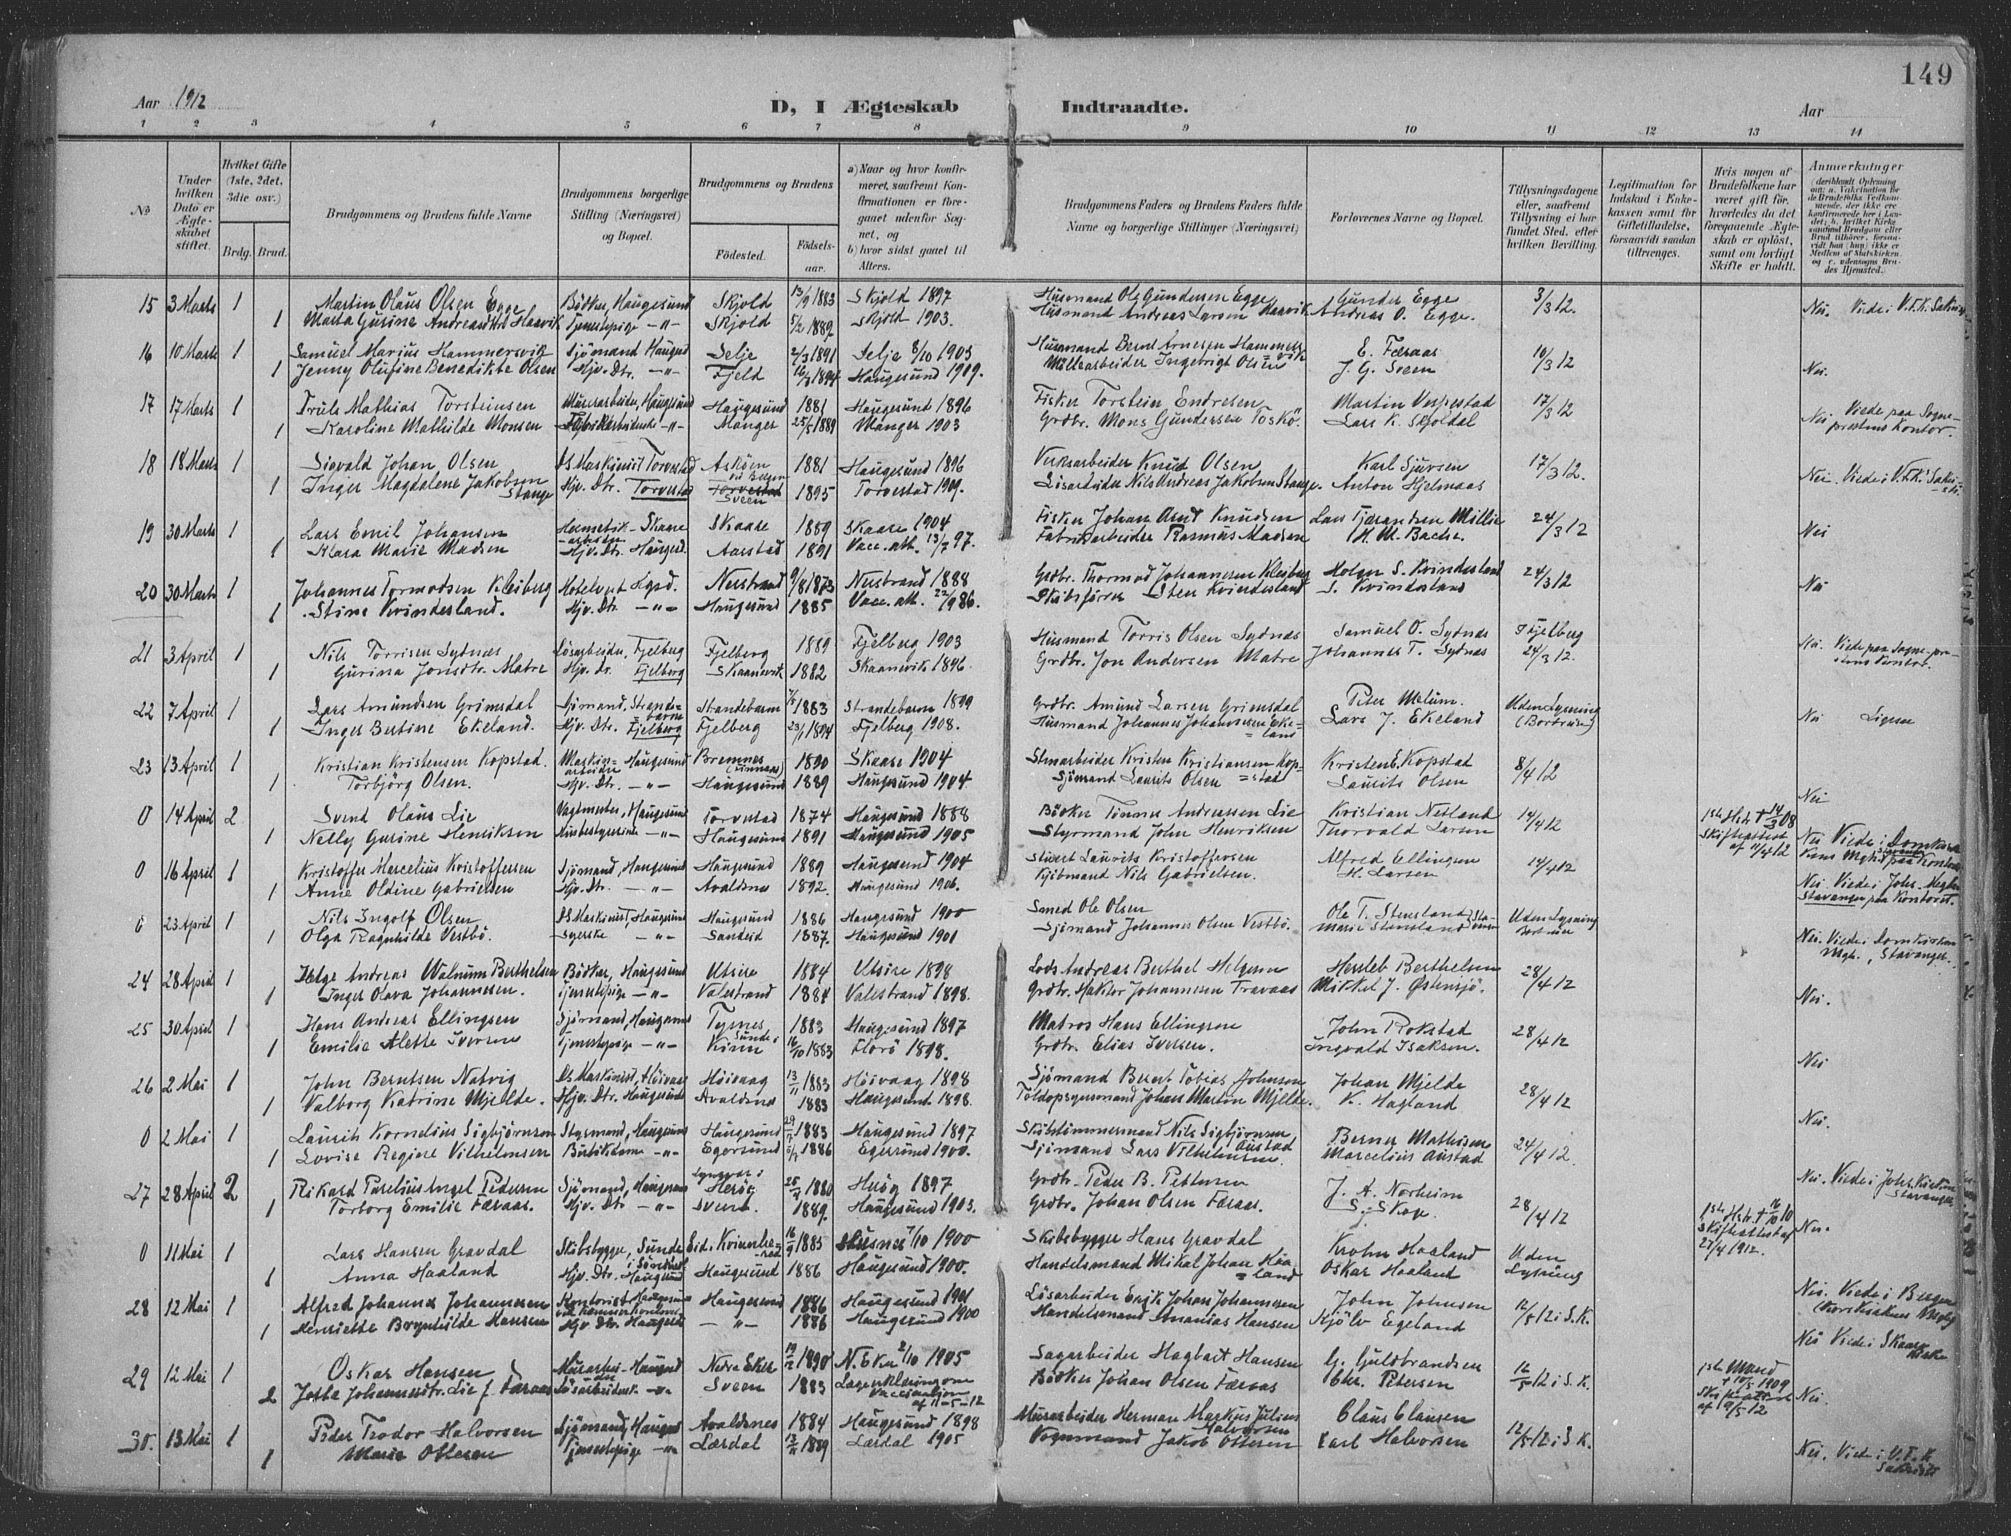 149
Aar 1912
D, I Ægteskab Indtraadte.
Aar
1 2 3 4 5 6 7 8 9 10 11 12 13 14
No
Under hvilken Dato er Ægteskabet stiftet.
Hvilket Gifte (1ste, 2det, 3die osv.)
Brdg. Brud.
Brudgommens og Brudens fulde Navne
Brudgommens borgerlige Stilling (Næringsvei) og Bopæl.
Brudgommens og Brudens
Födested. Födselsaar.
a) Naar og hvor konfirmeret, saafremt Konfirmationen er foregaaet udenfor Sognet, og
b) hvor sidst gaaet til Alters.
Brudgommens Faders og Brudens Faders fulde Navne og borgerlige Stillinger (Næringsvei)
Forlovernes Navne og Bopæl.
Tillysningsdagene eller, saafremt Tillysning ei har fundet Sted, efter hvilken Bevilling.
Legitimation for Indskud i Enkekassen samt for Giftetilladelse, forsaavidt saadan tiltrænges.
Hvis nogen af Brudefolkene har været gift för, hvorledes da det foregaaende Ægteskab er oplöst, samt om lovligt Skifte er holdt.
Anmerkninger
15 3 Marts 1 Martin Olaus Olsen Egge Bödker, Haugesund Skjold 13/9 1883 Skjold 1897 Husmand Ole Gundersen Egge Gunder Egge 3/3 12.
1 Marta Gurine Andreasdtr Haavik Tjenestepige -"- Skjold 5/2 1889 Skjold 1903. Husmand Andreas Larsen Haavik Andreas O. Egge. Nei. Viede i V.F.K.
16 10 Marts 1 Samuel Marius Hammersvik Sjömand Haugsd Selje 2/3 1891 Selje 8/10 1905 Husmand Bernt Arnesen Hammersvik E. Færaas 10/3 12
1 Jenny Olufine Benedikte Olsen Hjv. Dtr. -"- Fjeld 1894 Haugesund 1909. Ingebrigt Olsen J. G. Sveen Nei.
17 17 Marts 1 Truls Mathias Torsteinsen Murerarbeider, Haugesund Haugesund 1881 Haugesund 1896 Fisker Torstein Endresen Martin Vespestad 17/3 12
1 Karoline Mathilde Monsen Fabrikarbeiderske -"- Manger 25/5 1889 Manger 1903 Grdbr. Mons Gundersen Toskö. Lars K. Skjoldal Nei Viede paa Sogneprestens Kontor.
18 18 Marts 1 Sigvald Johan Olsen DS Maskinist Torvestad Asköen ved Bergen 1881 Haugesund 1896 Verksarbeider Knud Olsen Karl Sjursen 17/3 12.
1 Inger Magdalene Jakobsen Stange Hjv. Dtr. Torvestad Sveen 1895 Torvestad 1909. Lösarbeider Nils Andreas Jakobsen Stange. Anton Hjelmaas Nei. Viede i V.F.K.
19 30 Marts 1 Lars Emil Johansen Hermetikarbeider Skaare Skaare 1889 Skaare 1904 Fisker Johan Arnt Knudsen Lars Tjerandsen Millie 24/3 12
1 Klara Marie Madsen Hjv. Dtr. Haugesd. Aarstad 1891 Vacc. att. 13/7 97. Fabrikarbeider Rasmus Madsen H. M. Bache. Nei
20 30 Marts 1 Johannes Tormodsen Kleiberg Hotelvert Nerstrand 9/8 1873 Nerstrand 1888 Grdbr. Thormod Johannesen Kleiberg Holger S. Kvindesland 24/3 12
1 Stine Kvindesland. Hjv. Dtr. -"- Haugesund 1885 Vacc. att. 22/9 86. Skibsförer Sten Kvindesland S. Kvindesland Nei
21 3 April 1 Nils Torrisen Sydnæs Lösarbeider, Fjelberg Fjelberg 1889 Fjelberg 1903 Husmand Torris Olsen Sydnæs Samuel O. Sydnæs Fjelberg
1 Gurina Jonsdtr. Matre Hjv. dr. Fjelberg Skaanevik 1882 Skaanevik 1896 Grdbr. Jon Andersen Matre Johannes T. Sydnæs 24/3 12. Nei. Viede paa Sogneprestens Kontor.
22 7 April 1 Lars Amundsen Grimsdal Sjömand, Strandebarm Strandebarm 1883 Strandebarm 1899 Grdbr. Amund Larsen Grimsdal Peter Melum. Uden Lysning
1 Inger Bertine Ekeland. Hjv. Dtr. Fjelberg Fjelberg 23/1 1894 Fjelberg 1908. Husmand Johannes Johannesen Ekeland Lars J. Ekeland Nei
23 13 April 1 Kristian Kristensen Kopstad. Maskinarbeider Haugesund Bremnes 1890 Skaare 1904 Stenarbeider Kristen Kristiansen Kopstad Kristen E. Kopstad 8/4 12
1 Torbjörg Olsen. Hjv. Dtr. -"- Haugesund 1889 Haugesund 1904. Sjömand Laurits Olsen Laurits Olsen Nei
0 14 April 2 Svend Olaus Lie Vegtmester, Haugesund Torvestad 1874 Haugesund 1888 Bödker Tönnes Andreassen Lie Kristian Netland 14/4 12 1ste Hstr † 14/3 08
1 Nelly Gurine Henrikson Husbestyrerinde -"- Haugesund 1891 Haugesund 1905 Styrmand John Henriksen Thorvald Larsen Skifteattest af 11/4 12 Nei Viede i Domkirken
0 16 April 1 Kristoffer Marcelius Kristoffersen Sjömand, Haugesund Haugesund 1889 Haugesund 1904 Stuert Laurits Kristoffersen Alfred Ellingsen 14/4 12
1 Anne Oldine Gabrielsen Hjv. Dtr. -"- Avaldsnes 1892. Haugesund 1906. Kjöbmand Nils Gabrielsen. H. Larsen Nei Viede i Johs. Megh. Stavanger paa Kontoret.
0 23 April 1 Nils Ingolf Olsen DS Maskinist, Haugesund Haugesund 1886 Haugesund 1900 Smed Ole Olsen Ole T. Stensland Uden Lysning
1 Olga Ragnhilde Vestbö. Syerske -"- Sandeid 1887. Haugesund 1901 Sjömand Johannes Olsen Vestbö. Marie Stensland Nei. Viede i Domkirken Mgh., Stavanger.
24 28 April 1 Helge Andreas Walnum Berthelsen Bödker, Haugesund Utsire 1884 Utsire 1898 Lods Andreas Berthel Helgesen Hersleb Berthelsen 28/4 12
1 Inger Olava Johannesen. Tjenestepige -"- Valestrand 1884 Valestrand 1898. Grdbr. Haktor Johannesen Travaas Mikkel J. Østensjö. Nei.
25 30 April 1 Hans Andreas Ellingsen Sjömand, Haugesund Tysnes 1883 Haugesund 1897 Matros Hans Ellingsen John Rokstad 28/4 12
1 Emilie Alette Iversen Tjenestepige -"- Kinn 16/10 1883 Florö 1898. Grdbr. Elias Iversen. Ingvald Isaksen. Nei
26 2 Mai 1 John Berntsen Natvig DS Maskinist, Höivaag Höivaag 13/11 1883 Höivaag 1898 Sjömand Bernt Tobias Johnsen Johan Mjelde 28/4 12
1 Valborg Katrine Mjelde. Hjv. Dtr. Haugesund Avaldsnes 1883 Haugesund 1898. Toldopsynsmand Johan Martin Mjelde. K. Hagland Nei.
0 2 Mai 1 Laurits Kornelius Sigbjörnsen Styrmand, Haugesund Haugesund 1883 Haugesund 1897 Skibstömmermand Nils Sigbjörnsen Berner Mathisen 24/4 12
1 Lovise Regine Vilhelmsen Butikdame -"- Egersund 1886 Egersund 1900. Sjömand Lars Vilhelmsen Austad Marcelius Austad Nei. Viede i Johs. Kirken Stavanger
27 28 April 2 Rikard Parelius Angel Pedersen Sjömand, Haugesund Heröy 25/9 1880 Heröy 1897 Grdbr. Peder B. Pettersen J. A. Norheim 28/4 12 1ste Hstr. † 16/10 10
1 Torborg Emilie Færaas. Hjv. Dtr. -"- Sveen. 1889. Haugesund 1903. Grdbr. Johan Olsen Færaas. S. Skog. Skifteattest af 27/4 1912. Nei.
0 11 Mai 1 Lars Hansen Gravdal Skibsbygger, Sunde Eid i Kvinnherred 16/9 1885 Husnes 7/10 1900 Skibsbygger Hans Gravdal Krohn Haaland Uden
1 Anna Haaland Hjv. Dtr. Haugesund Haugesund 1886 Haugesund 1900. Handelsmand Mikal Johan Haaland Oskar Haaland Lysning Nei. Viede i Bergen
28 12 Mai 1 Alfred Johannes Johannesen Kontorist Haugesund 1886 Haugesund 1901 Lösarbeider Erik Johan Johannesen John Johnsen 12/5 12 i S.K.
1 Henriette Brynhilde Hansen Hjv Dtr. Haugesd -"- 1886 Haugesund 1900 Handelsmand Ananias Hansen Kjölv Egeland Nei Viede i Skaare Kirke
29 12 Mai 1 Oskar Hansen Murarbeider Haugesd Nedre Eker 19/12 1890 N. Eker 2/10 1905 Sagarbeider Hagbart Hansen G. Guldbrandsen 12/5 12 i S.K. 1ste Mand † 10/5 1909
2 Josba Johannesdtr. Lie f. Færaas Lösarbeidersk. -"- Sveen 1883 Lægeerklæring om Vaccination af 11-5-12 Bödker Johan Olsen Færaas Chr. Petersen Skifteattest af 9/5 12 Nei.
30. 13 Mai 1 Peder Teodor Halvorsen Sjömand, Haugesd Avaldsnes 1884 Haugesund 1898 Murarbeider Herman Markus Julius Halvorsen Claus Clausen 12/5 12 i S.K.
1 Marie Ottesen Tjenestepige -"- Lærdal 13/11 1889 Lærdal 1905 Vognmand Jakob Ottesen Karl Halvorsen Nei. Viede i V.F.K. Sakristi